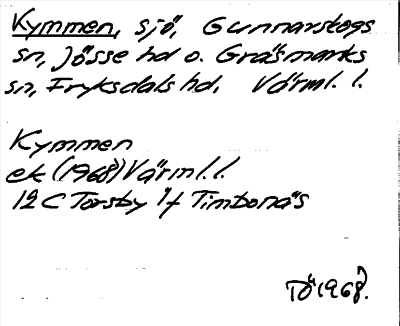 Kymmen, sjö, Gunnarskogs
sn, Jösse hd o. Gräsmarks
sn, Fryksdals hd, Värml. l.
Kymmen
ek (1968) Värml. l.
12 C Torsby 1f Timbonäs
TÖ 1968.